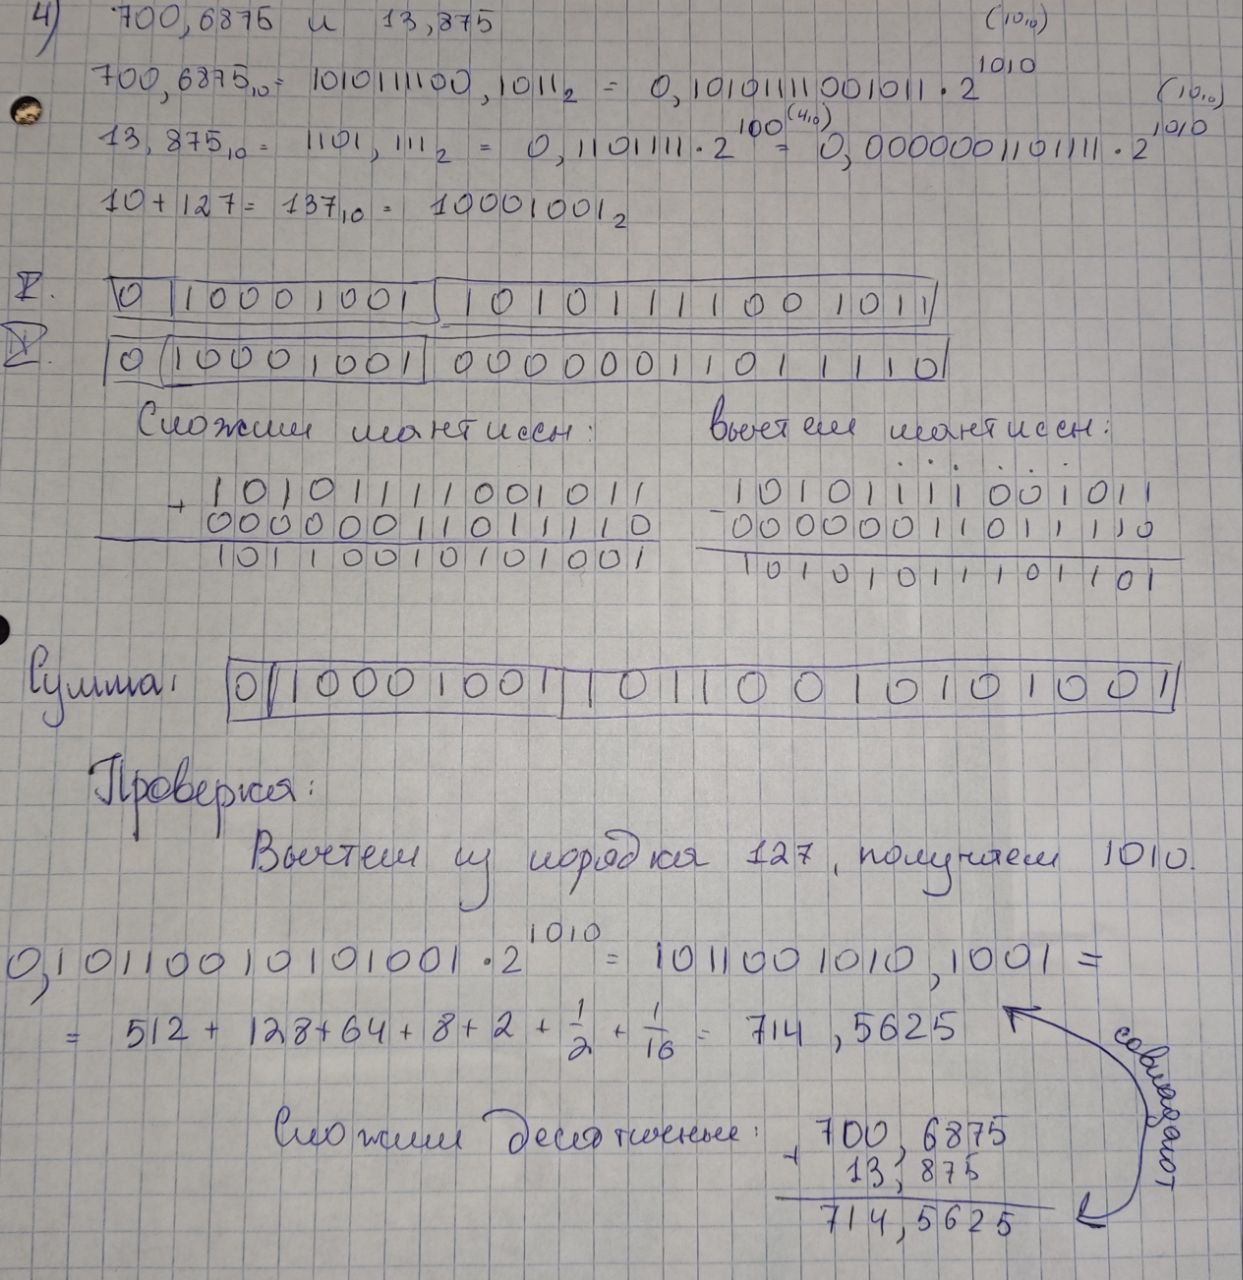 4) 700,6875 и 13,875
(10₁₀)
700,6875₁₀ = 1010111100,1011₂ = 0,10101111001011 · 2^1010
(4₁₀) (10₁₀)
13,875₁₀ = 1101,111₂ = 0,1101111 · 2^100 = 0,0000001101111 · 2^1010
10 + 127 = 137₁₀ = 10001001₂
I. 0 10001001 10101111001011
II. 0 10001001 00000011011110
Сложим мантиссы: Вычтем мантиссы:
+ 10101111001011 - 10101111001011
00000011011110 00000011011110
10110010101001 10101011101101
Сумма: 0 10001001 10110010101001
Проверка:
Вычтем из порядка 127, получаем 1010.
0,10110010101001 · 2^1010 = 1011001010,1001 =
= 512 + 128 + 64 + 8 + 2 + 1/2 + 1/16 = 714,5625
совпадают
Сложим десятичные: + 700,6875
13,875
714,5625